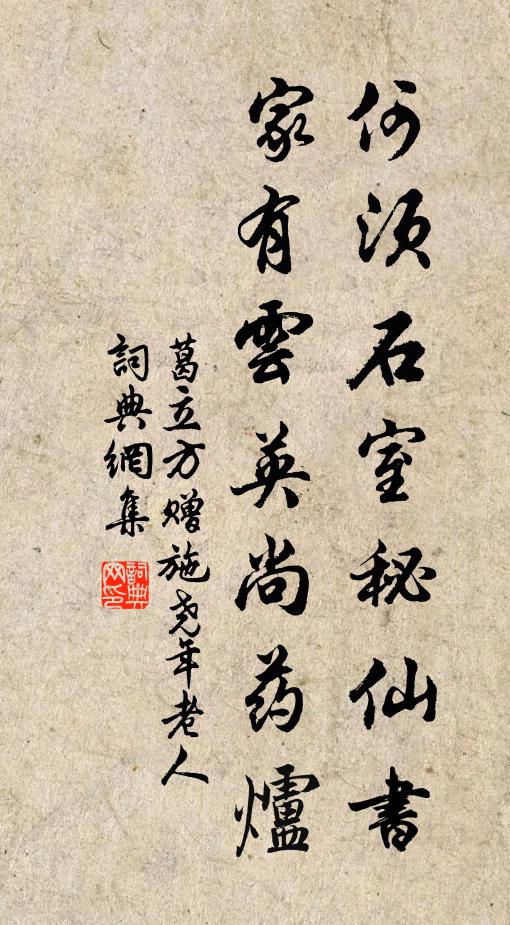 何须石室秘仙書
家有雲英尚药爐
葛立方赠施尧年老人
詞典網集
詞典网印